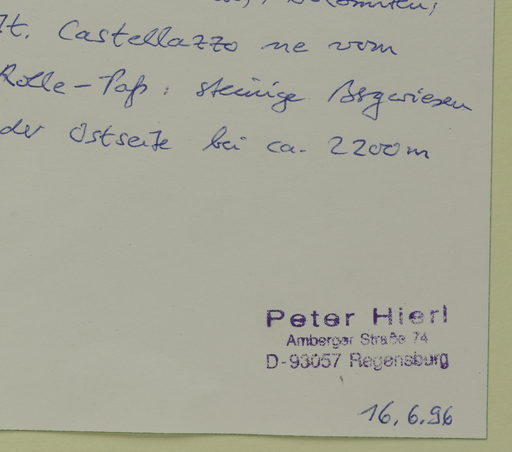 Dolomiten,
Mt. Castellazzo ne vom
Rolle-Paß: steinige Bergwiesen
der Ostseite bei ca. 2200m
Peter Hierl
Amberger Straße 74
D-93057 Regensburg
16.6.96